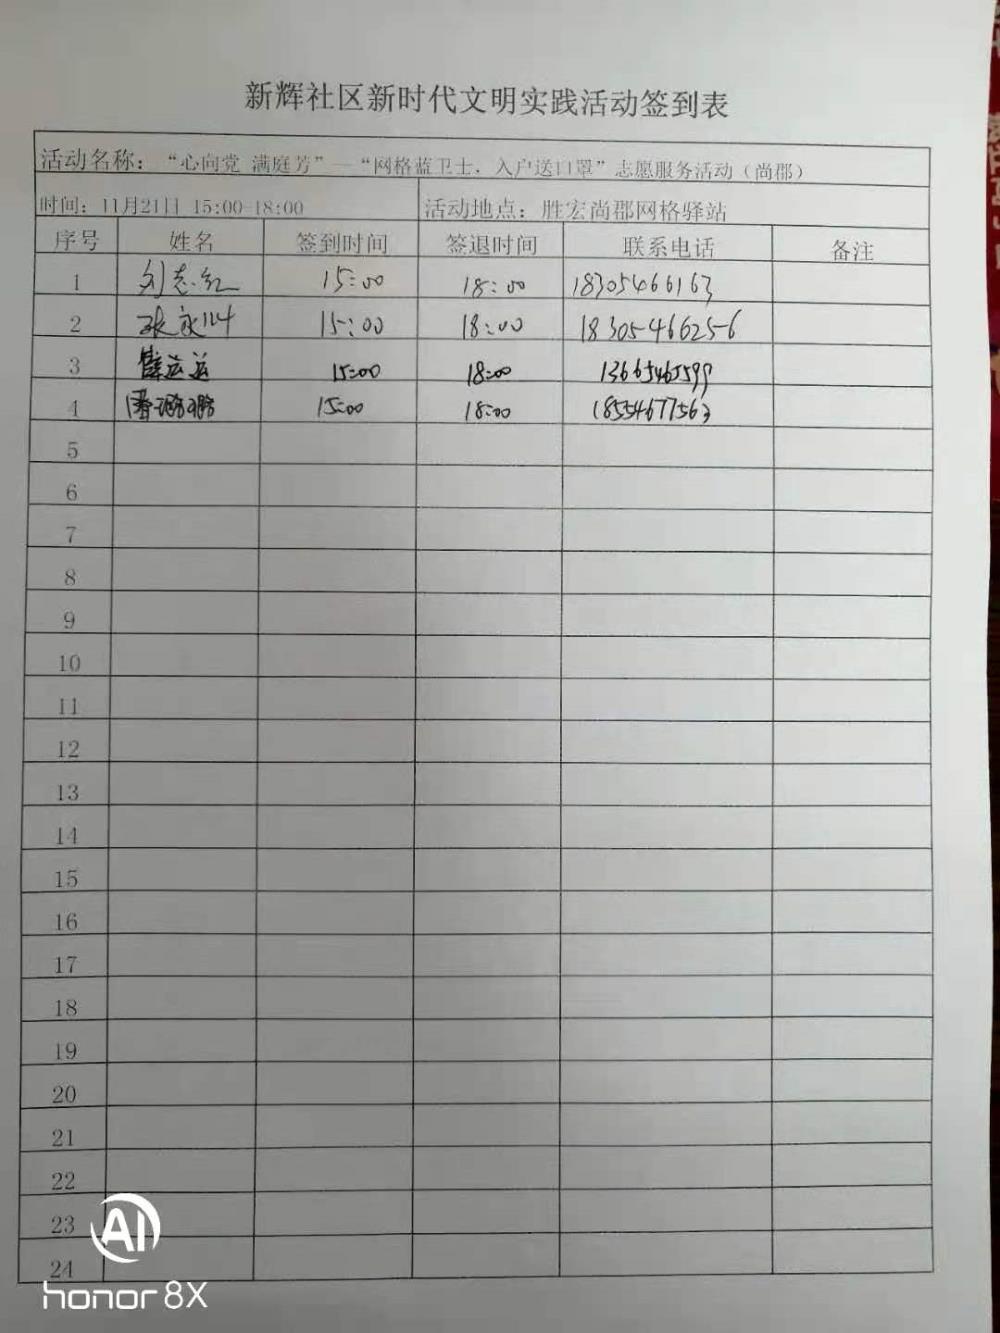 新辉社区新时代文明实践活动签到表
活动名称：“心向党 满庭芳”—“网格蓝卫士，入户送口罩”志愿服务活动（尚郡）
时间：11月21日 15:00-18:00 活动地点：胜宏尚郡网格驿站
序号 姓名 签到时间 签退时间 联系电话 备注
1 刘志红 15:00 18:00 18305466163
2 张永叶 15:00 18:00 18305466256
3 薛运运 15:00 18:00 13665465599
4 潘璐璐 15:00 18:00 18554677563
5
6
7
8
9
10
11
12
13
14
15
16
17
18
19
20
21
22
23
24
AI
honor 8X